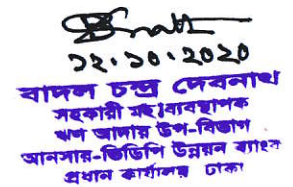 ১২.১০.২০২০
বাদল চন্দ্র দেবনাথ
সহকারী মহাব্যবস্থাপক
ঋণ আদায় উপ-বিভাগ
আনসার-ভিডিপি উন্নয়ন ব্যাংক
প্রধান কার্যালয় ঢাকা